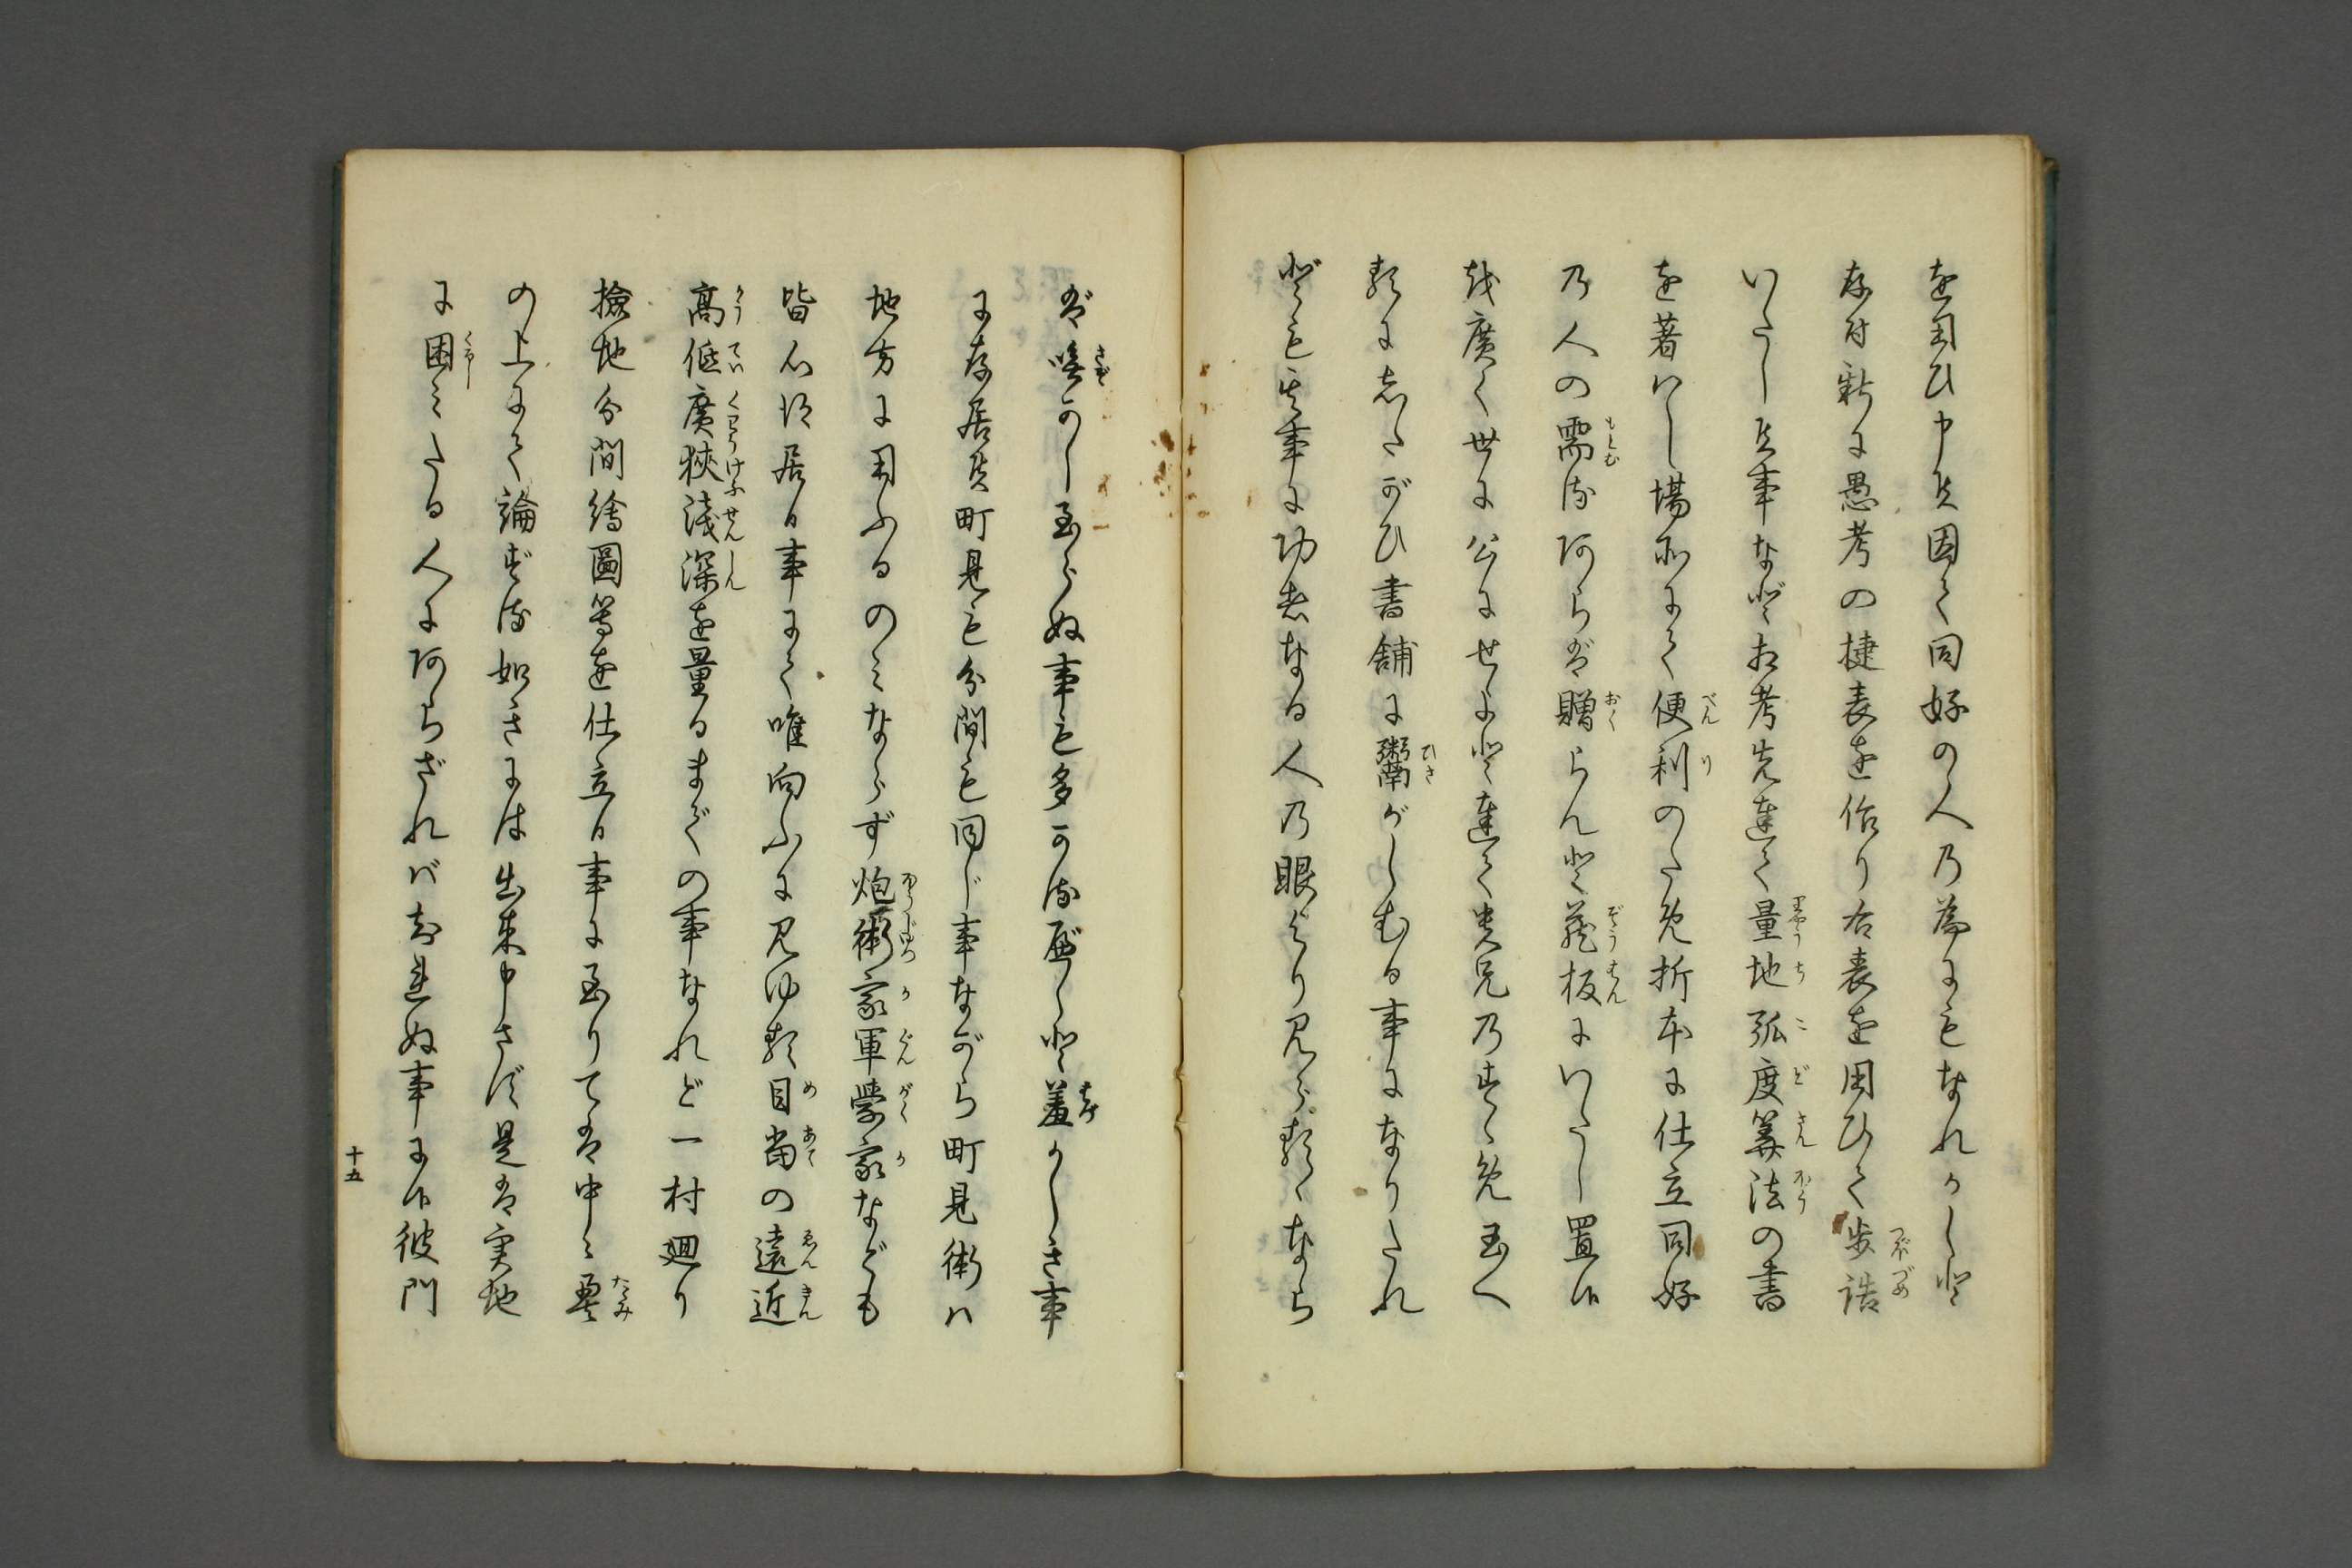 を用ひ申候因て同好の人乃為にもなれかしと
存付新に愚考の捷表を作り右表を用ひて歩詰
いたし候事など相考先達て量地弧度筭法の書
を著いし場所にて便利のため折本に仕立同好
乃人の需るあらば贈らんと蔵板にいたし置候
を廣く世に公にせよと達て貴兄乃すゝめ玉へ
るにしたがひ書舗に鬻がしむる事になりたれ
ども其事に功者なる人乃眼より見らるゝなら
ば嘸かし至らぬ事も多かるべしと羞かしき事
に存居候町見も分間も同じ事ながら町見術ハ
地方に用ふるのみならず炮術家軍学家なども
皆心得居る事にて唯向ふに見ゆる目当の遠近
高低廣狭淺深を量るまでの事なれど一村廻り
撿地分間繪圖等を仕立る事に至りては中々畳
の上にて論ずる如きには出来申さず是は実地
に困みたる人にあらざれば知れぬ事に候彼門
十五